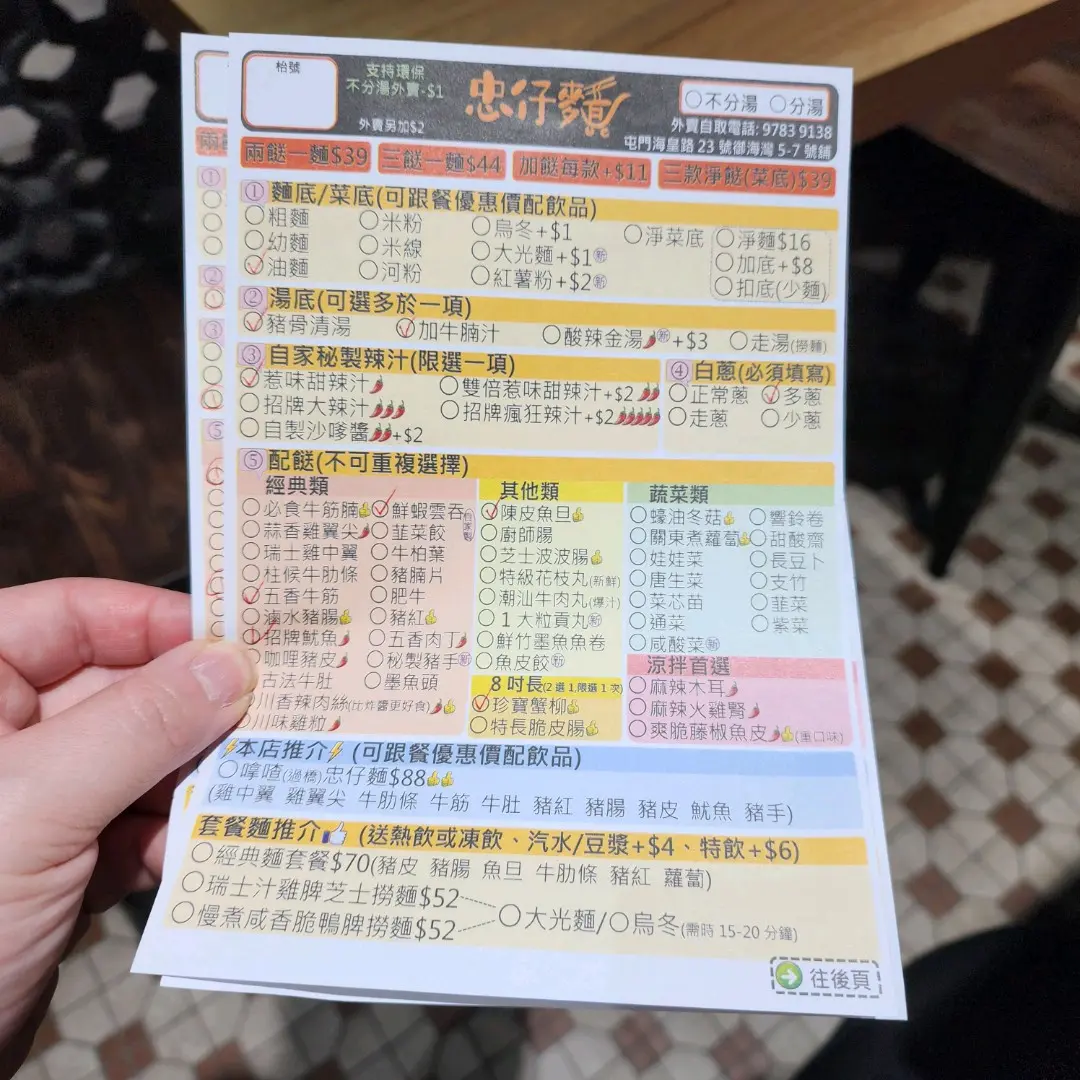 枱號
支持環保
不分湯外賣-$1
外賣另加$2
忠仔麵
不分湯 分湯
外賣自取電話: 9783 9138
屯門海皇路 23 號御海灣 5-7 號舖
兩餸一麵$39 三餸一麵$44 加餸每款+$11 三款淨餸(菜底)$39
① 麵底/菜底(可跟餐優惠價配飲品)
粗麵 米粉 烏冬+$1 淨菜底 淨麵$16
幼麵 米線 大光麵+$1新 加底+$8
油麵 河粉 紅薯粉+$2新 扣底(少麵)
② 湯底(可選多於一項)
豬骨清湯 加牛腩汁 酸辣金湯新+$3 走湯(撈麵)
③ 自家秘製辣汁(限選一項)
惹味甜辣汁 雙倍惹味甜辣汁+$2
招牌大辣汁 招牌瘋狂辣汁+$2
自製沙嗲醬+$2
④ 白蔥(必須填寫)
正常蔥 多蔥
走蔥 少蔥
⑤ 配餸(不可重複選擇)
經典類
必食牛筋腩 鮮蝦雲吞
蒜香雞翼尖 韮菜餃
瑞士雞中翼 牛柏葉
柱候牛肋條 豬腩片
五香牛筋 肥牛
滷水豬腸 豬紅
招牌魷魚 五香肉丁
咖哩豬皮 秘製豬手新
古法牛肚 墨魚頭
川香辣肉絲(比炸醬更好食)
川味雞粒
其他類
陳皮魚旦
廚師腸
芝士波波腸
特級花枝丸(新鮮)
潮汕牛肉丸(爆汁)
1 大粒貢丸新
鮮竹墨魚魚卷
魚皮餃新
8 吋長(2 選 1,限選 1 次)
珍寶蟹柳
特長脆皮腸
蔬菜類
蠔油冬菇 響鈴卷
關東煮蘿蔔 甜酸齋
娃娃菜 長豆卜
唐生菜 支竹
菜芯苗 韮菜
通菜 紫菜
咸酸菜新
涼拌首選
麻辣木耳
麻辣火雞腎
爽脆藤椒魚皮(重口味)
本店推介 (可跟餐優惠價配飲品)
嗱喳(過橋)忠仔麵$88
(雞中翼 雞翼尖 牛肋條 牛筋 牛肚 豬紅 豬腸 豬皮 魷魚 豬手)
套餐麵推介 (送熱飲或凍飲、汽水/豆漿+$4、特飲+$6)
經典麵套餐$70(豬皮 豬腸 魚旦 牛肋條 豬紅 蘿蔔)
瑞士汁雞脾芝士撈麵$52
慢煮咸香脆鴨脾撈麵$52
大光麵/烏冬(需時 15-20 分鐘)
往後頁